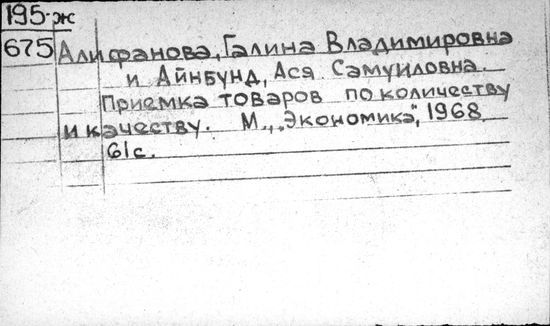 195-ж
675 Алифанова, Галина Владимировна
и Айнбунд, Ася Самуиловна.
Приемка товаров по количеству
и качеству. М., „Экономика", 1968
61с.